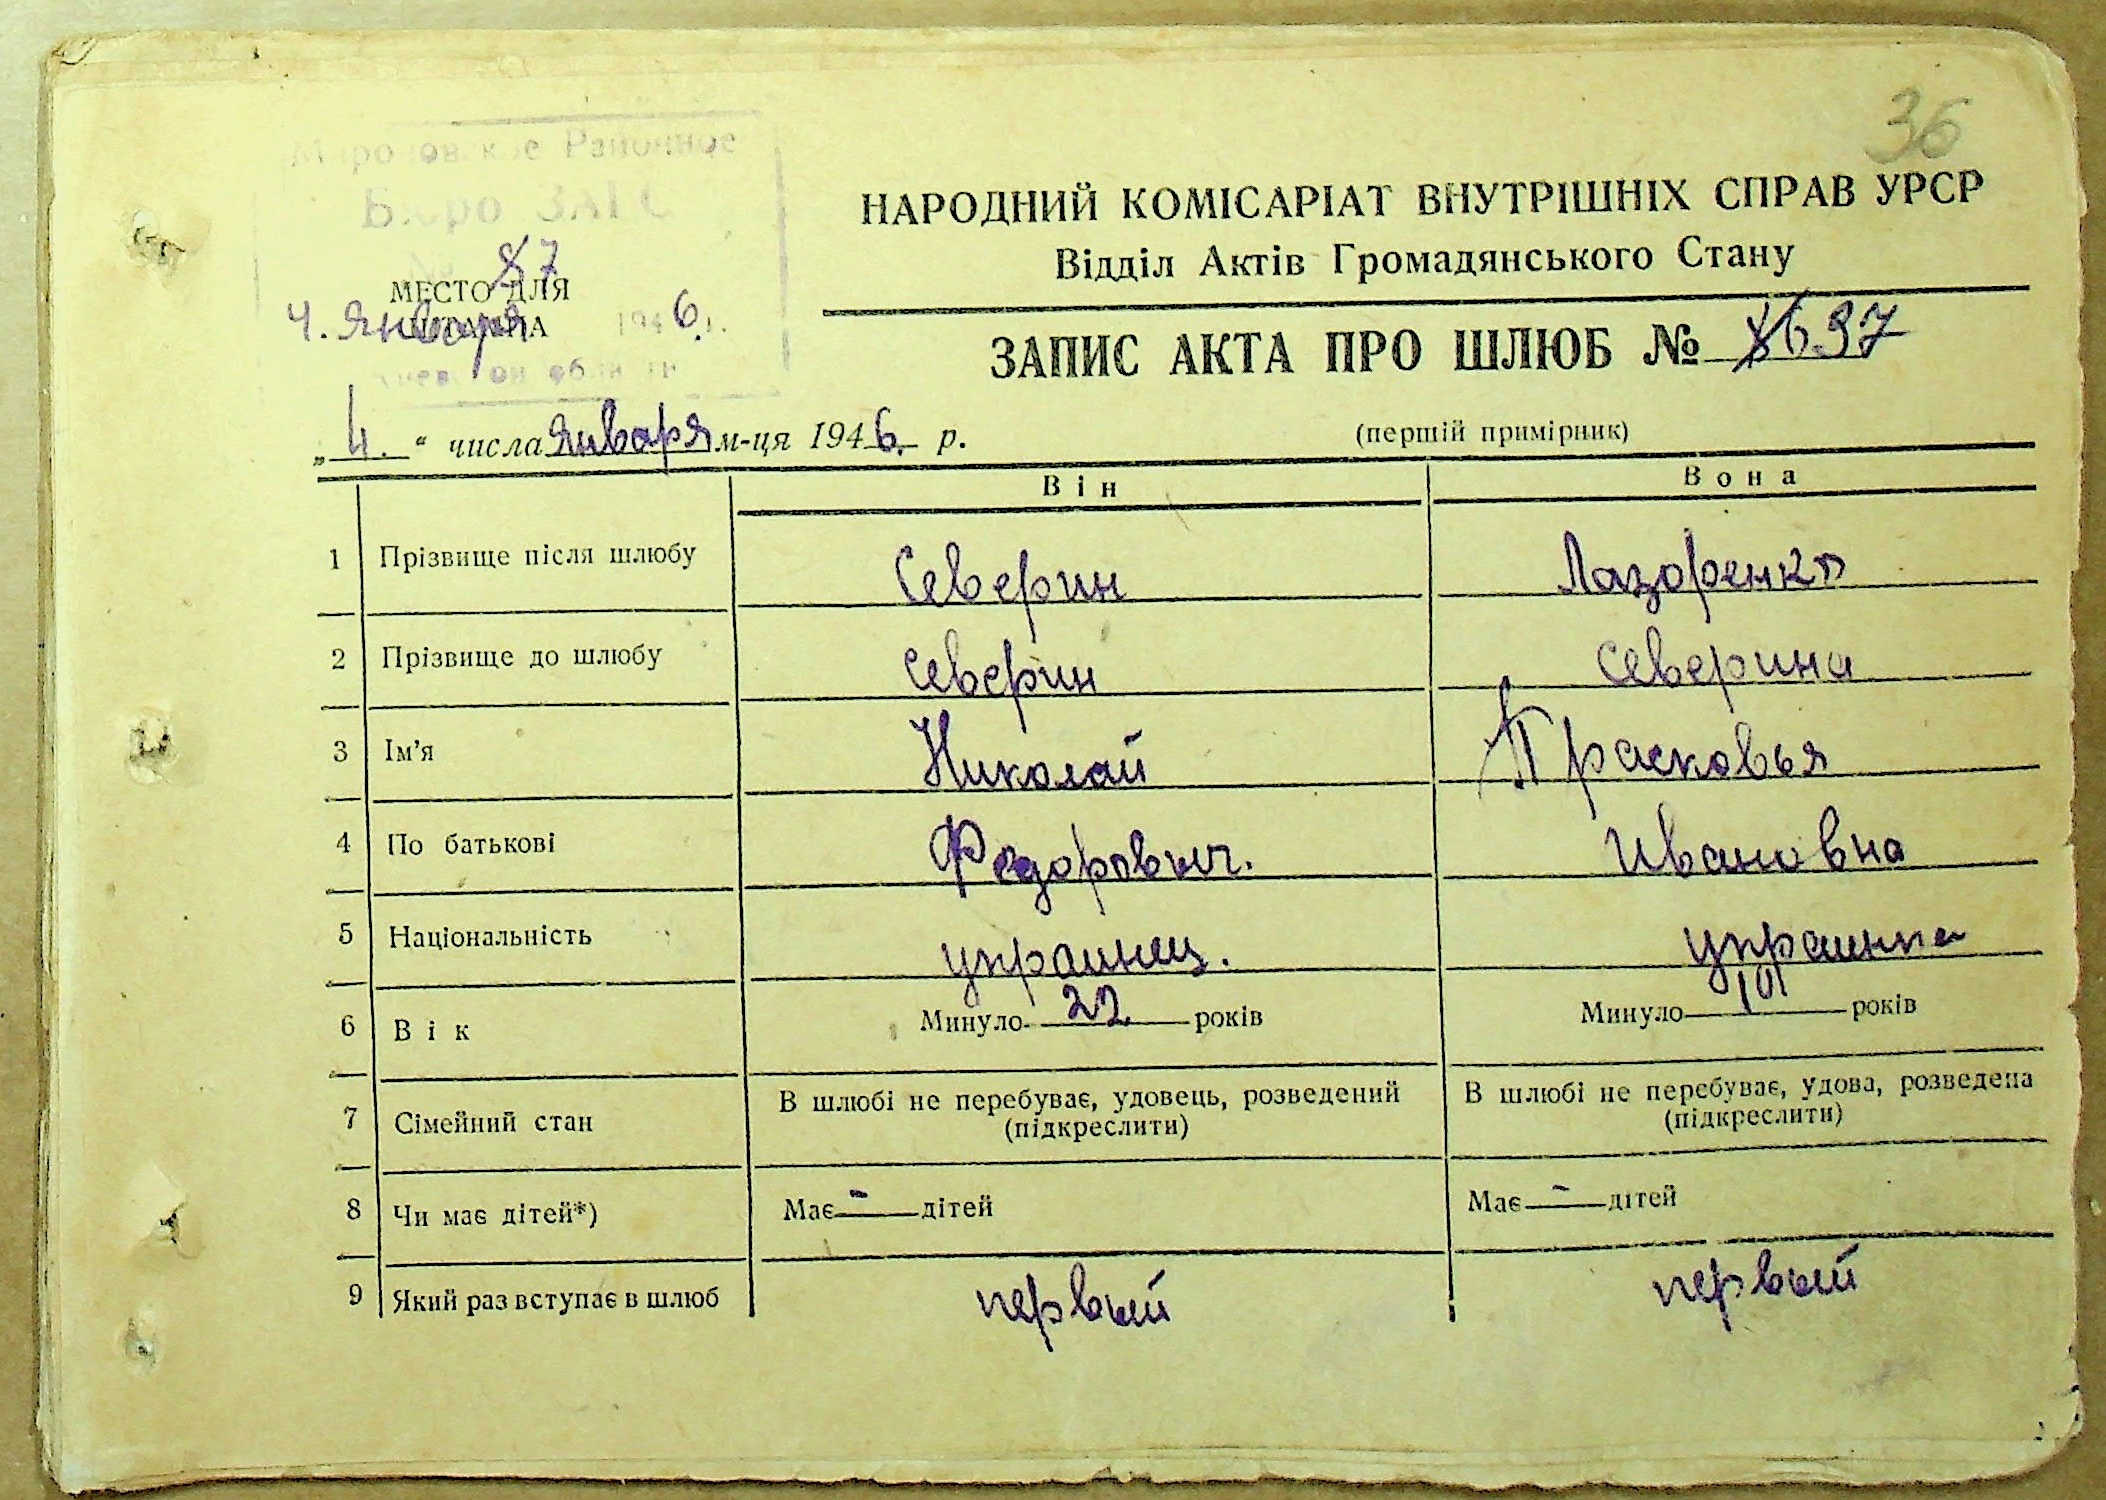 36
Мироновское Районное
Бюро ЗАГС
№ 87
МЕСТО ДЛЯ
ШТАМПА
4. Января 1946 г.
Киевской области
НАРОДНИЙ КОМІСАРІАТ ВНУТРІШНІХ СПРАВ УРСР
Відділ Актів Громадянського Стану
ЗАПИС АКТА ПРО ШЛЮБ №
„4.“ числа января м-ця 1946. р.
(першій примірник)
Він Вона
1 Прізвище після шлюбу Северин Лазоренко
2 Прізвище до шлюбу Северин Северина
3 Ім’я Николай Прасковья
4 По батькові Федорович. Ивановна
5 Національність украинец. украинка
6 Вік Минуло 22 років Минуло років
7 Сімейний стан В шлюбі не перебуває, удовець, розведений (підкреслити) В шлюбі не перебуває, удова, розведена (підкреслити)
8 Чи має дітей*) Має - дітей Має - дітей
9 Який раз вступає в шлюб первый первый